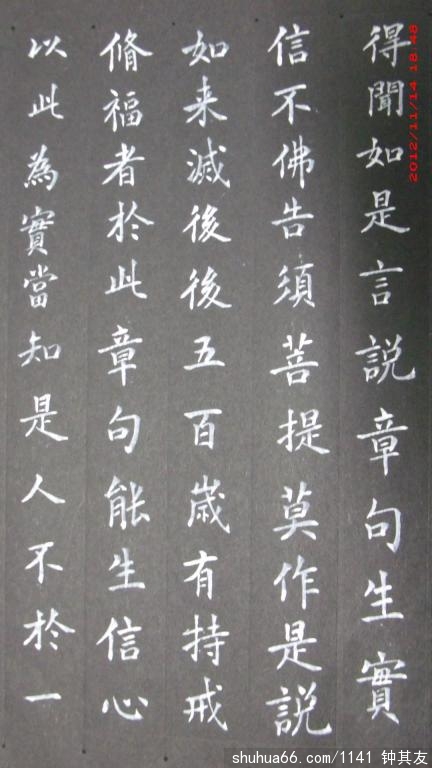 得聞如是言説章句生實
信不佛告須菩提莫作是説
如来滅後後五百歳有持戒
脩福者於此章句能生信心
以此為實當知是人不於一
2012/11/14 18:48
shuhua66.com/1141 钟其友